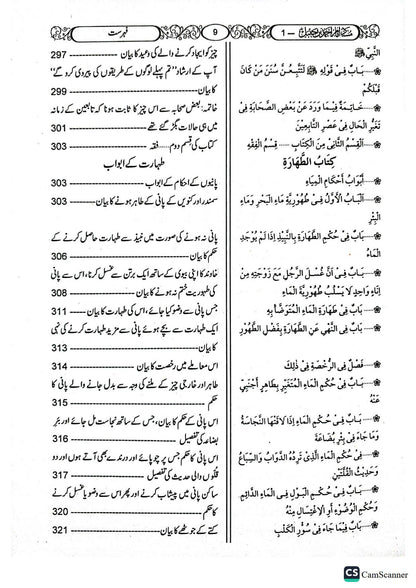 فہرست
9
مسند امام احمد بن حنبل — 1
النَّبِيِّ ﷺ
بَابٌ فِي قَوْلِهِ ﷺ لَتَتَّبِعُنَّ سَنَنَ مَنْ كَانَ
قَبْلَكُمْ
خَاتِمَةٌ فِيمَا وَرَدَ عَنْ بَعْضِ الصَّحَابَةِ فِي
تَغَيُّرِ الْحَالِ فِي عَصْرِ التَّابِعِينَ
اَلْقِسْمُ الثَّانِي مِنَ الْكِتَابِ ..... قِسْمُ الْفِقْهِ
كِتَابُ الطَّهَارَةِ
أَبْوَابُ أَحْكَامِ الْمِيَاهِ
اَلْبَابُ الْأَوَّلُ فِي طَهُورِيَّةِ مَاءِ الْبَحْرِ وَمَاءِ
الْبِئْرِ
بَابٌ فِي حُكْمِ الطَّهَارَةِ بِالنَّبِيذِ إِذَا لَمْ يُوجَدِ
الْمَاءُ
بَابٌ فِي أَنَّ غُسْلَ الرَّجُلِ مَعَ زَوْجَتِهِ مِنْ
إِنَاءٍ وَاحِدٍ لَا يَسْلُبُ طَهُورِيَّةَ الْمَاءِ
بَابٌ فِي طَهَارَةِ الْمَاءِ الْمُتَوَضَّأِ بِهِ
بَابٌ فِي النَّهْيِ عَنِ الطَّهَارَةِ بِفَضْلِ الطَّهُورِ
فَصْلٌ فِي الرُّخْصَةِ فِي ذٰلِكَ
بَابٌ فِي حُكْمِ الْمَاءِ الْمُتَغَيِّرِ بِطَاهِرٍ أَجْنَبِيٍّ
عَنْهُ
بَابٌ فِي حُكْمِ الْمَاءِ إِذَا لَاقَتْهَا النَّجَاسَةُ
وَمَا جَاءَ فِي بِئْرِ بُضَاعَةَ
فِي حُكْمِ الْمَاءِ الَّذِي تَرِدُهُ الدَّوَابُّ وَالسِّبَاعُ
وَحَدِيثِ الْقُلَّتَيْنِ
بَابٌ فِي حُكْمِ الْبَوْلِ فِي الْمَاءِ الدَّائِمِ
وَحُكْمِ الْوُضُوْءِ أَوِ الْاِغْتِسَالِ مِنْهُ
بَابٌ فِيمَا جَاءَ فِي سُؤْرِ الْكَلْبِ
چیز کو ایجاد کرنے والے کی وعید کا بیان 297
آپ کے ارشاد ”تم پہلے لوگوں کے طریقوں کی پیروی کرو گے“
کا بیان 299
خاتمہ: بعض صحابہ سے اس چیز کا ثابت ہونا کہ تابعین کے زمانہ
میں ہی حالات بگڑ گئے تھے 301
کتاب کی قسم دوم..... فقہ 303
طہارت کے ابواب
پانیوں کے احکام کے ابواب 303
سمندر اور کنویں کے پانی کے طاہر ہونے کا بیان 303
پانی نہ ہونے کی صورت میں نبیذ سے طہارت حاصل کرنے کے
حکم کا بیان 306
خاوند کا اپنی بیوی کے ساتھ ایک برتن سے غسل کرنا، اس سے پانی
کی طہوریت ختم نہ ہونے کا بیان 308
جس پانی سے وضو کیا جائے، اس کی طہارت کا بیان 311
ایک طہارت سے بچے ہوئے پانی سے مزید طہارت کرنے کی نہی
کا بیان 313
اس معاملے میں رخصت کا بیان 314
طاہر اور خارجی چیز کے ملنے کی وجہ سے بدل جانے والے پانی کا
حکم 315
اس پانی کے حکم کا بیان، جس کے ساتھ نجاست مل جائے اور بئر
بضاعہ کی تفصیل 316
اس پانی کا حکم جس پر چوپائے اور درندے بھی آتے ہوں اور دو
قلّوں والی حدیث کی تفصیل 317
ساکن پانی میں پیشاب کرنے اور پھر اس سے وضو یا غسل کرنے
کا حکم 320
کتے کے جوٹھے کا بیان 321
CS CamScanner